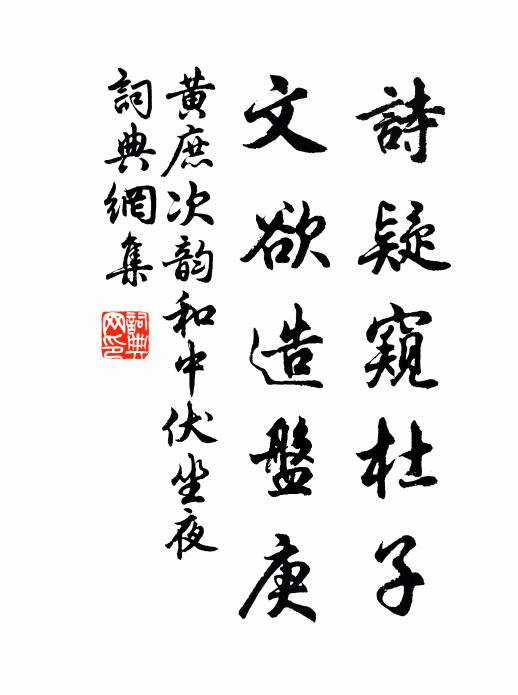 詩疑窺杜子
文欲造盤庚
黃庶次韵和中伏坐夜
詞典網集
詞典网印